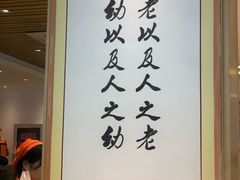 老以及人之老
幼以及人之幼